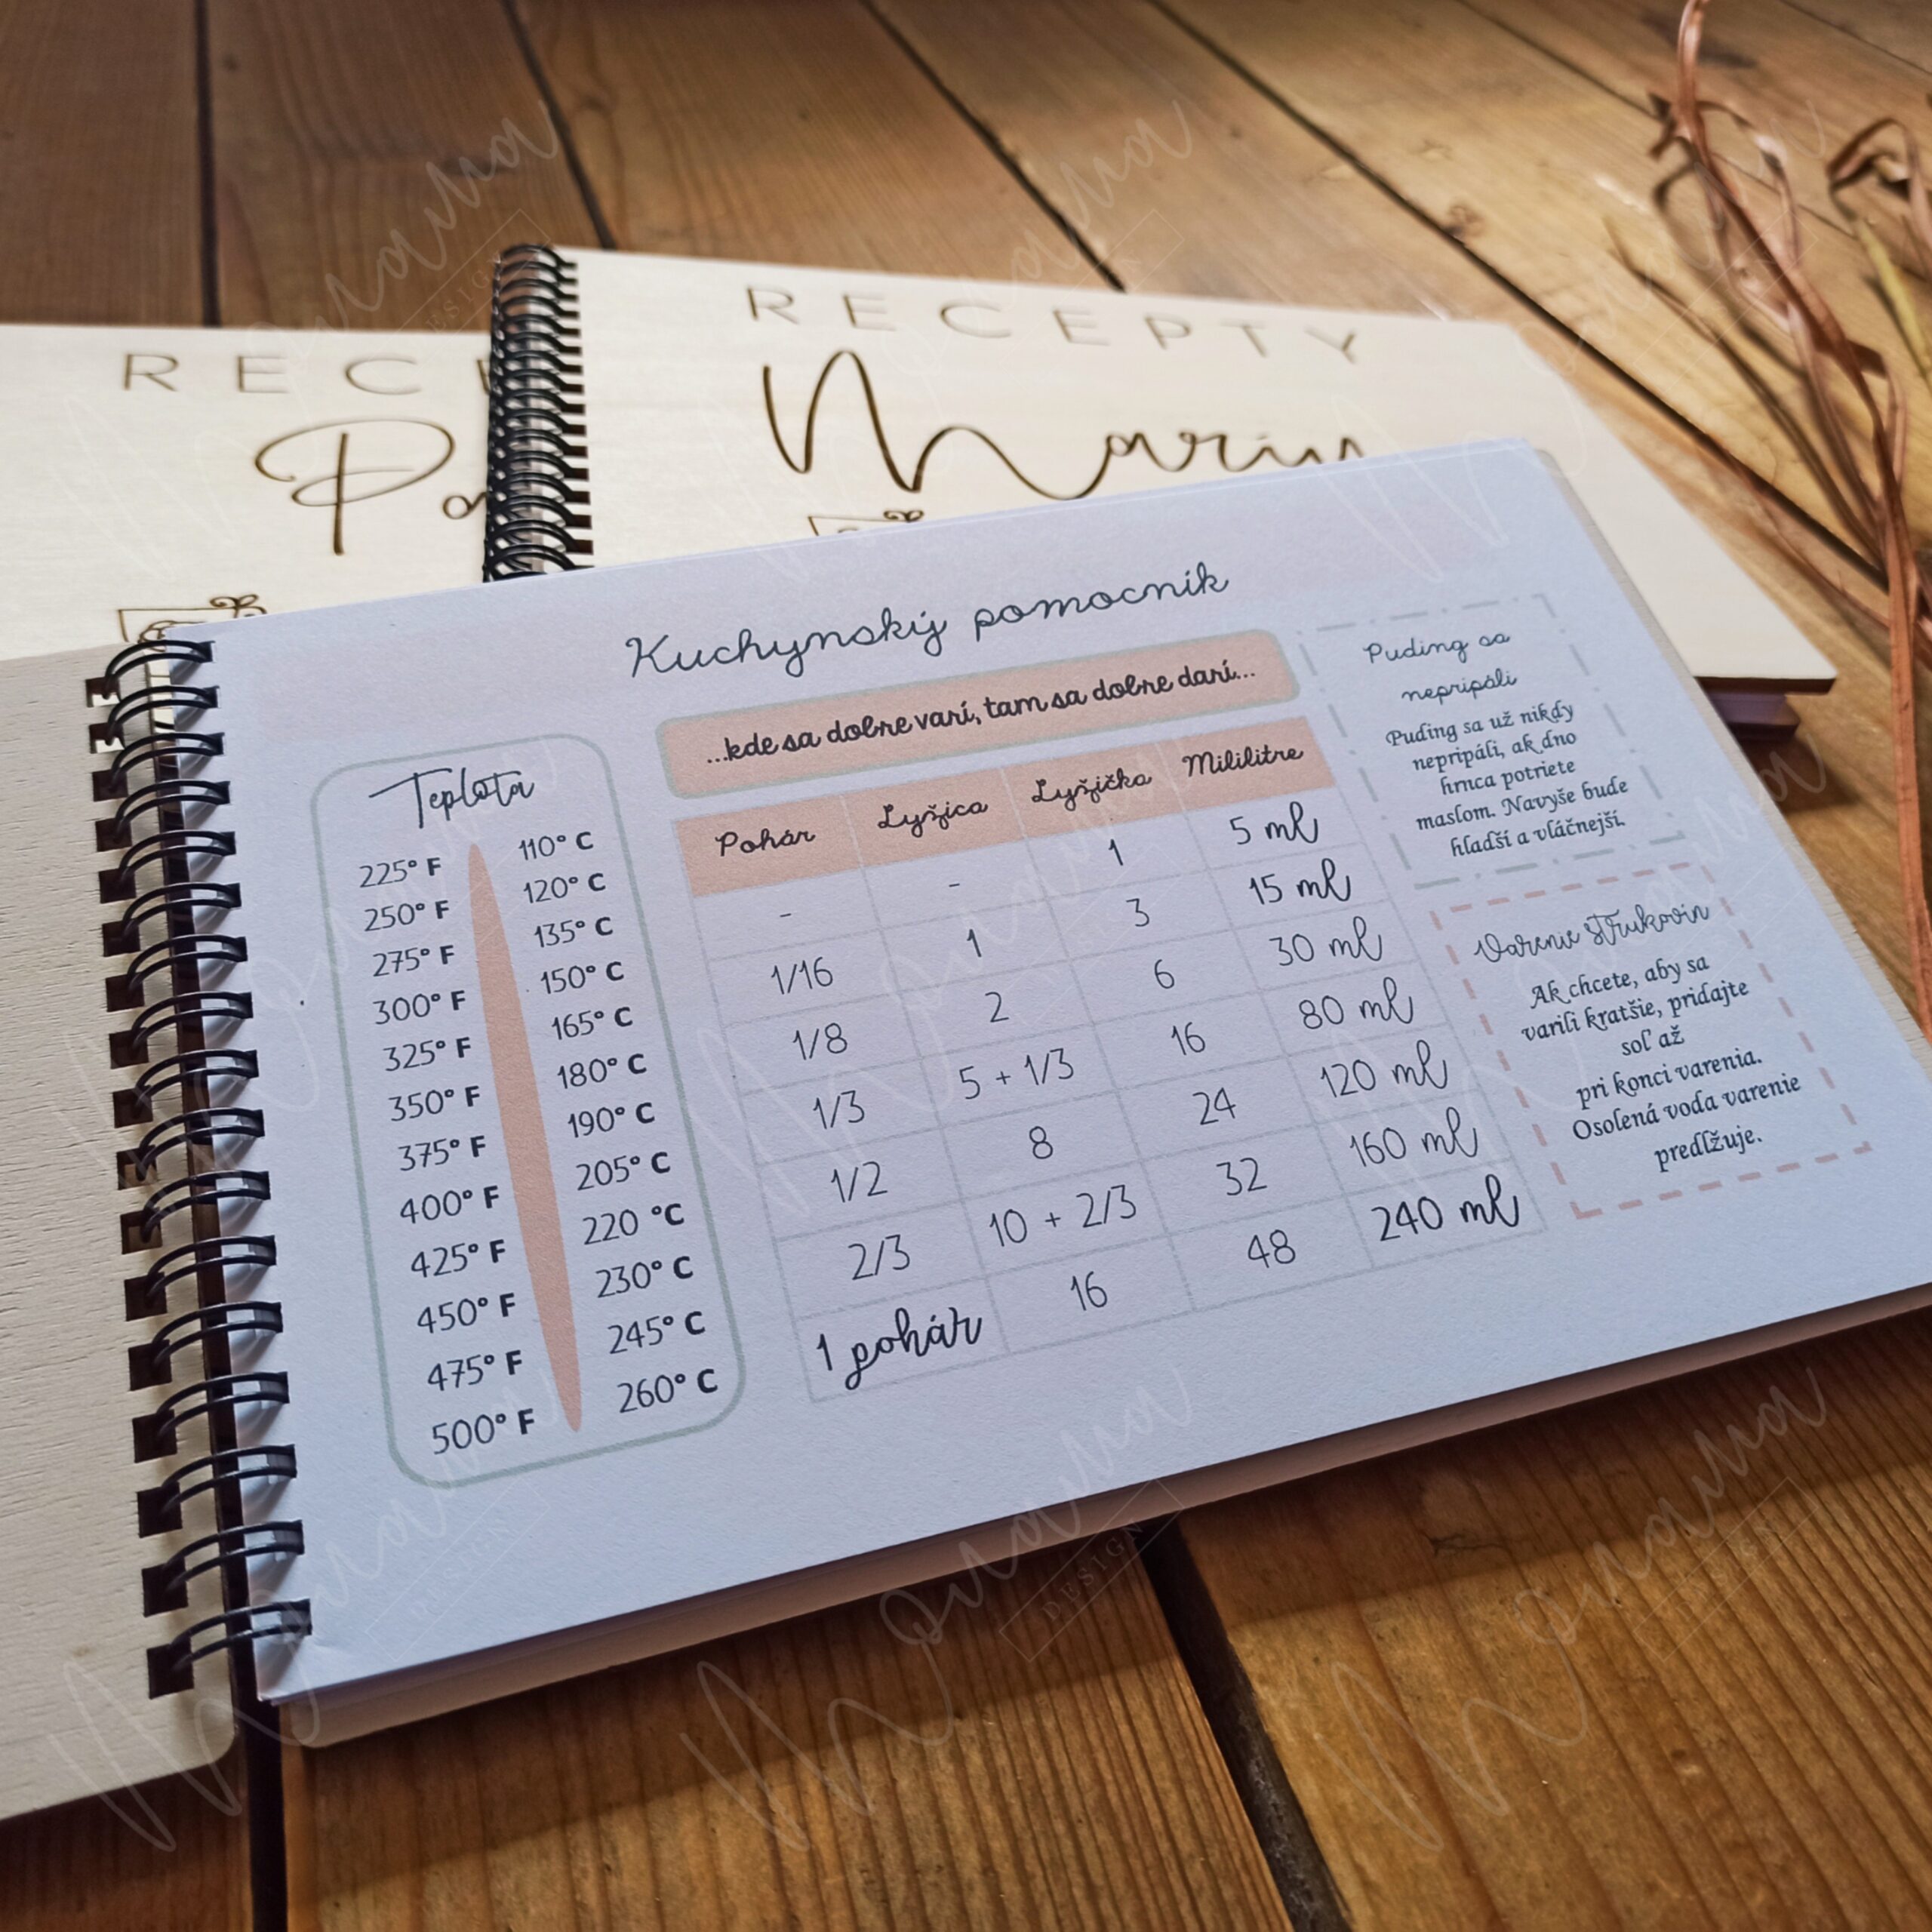 RECEPTY
REC
Kuchynský pomocník
...kde sa dobre varí, tam sa dobre darí...
Teplota
225° F 110° C
250° F 120° C
275° F 135° C
300° F 150° C
325° F 165° C
350° F 180° C
375° F 190° C
400° F 205° C
425° F 220 °C
450° F 230° C
475° F 245° C
500° F 260° C
Pohár Lyžica Lyžička Mililitre
- - 1 5 ml
1/16 1 3 15 ml
1/8 2 6 30 ml
1/3 5 + 1/3 16 80 ml
1/2 8 24 120 ml
2/3 10 + 2/3 32 160 ml
1 pohár 16 48 240 ml
Puding sa
nepripáli
Puding sa už nikdy
nepripáli, ak dno
hrnca potriete
maslom. Navyše bude
hladší a vláčnejší.
Varenie strukovín
Ak chcete, aby sa
varili kratšie, pridajte
soľ až
pri konci varenia.
Osolená voda varenie
predlžuje.
DESIGN